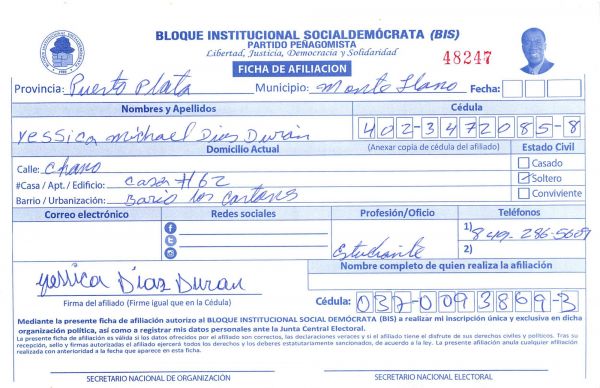 BLOQUE INSTITUCIONAL SOCIALDEMÓCRATA (BIS)
PARTIDO PEÑAGOMISTA
Libertad, Justicia, Democracia y Solidaridad
48247
FICHA DE AFILIACION
Provincia: Puerto Plata Municipio: Monte Llano Fecha:
Nombres y Apellidos Cédula
Yessica Michael Dias Durán 402-3472085-8
(Anexar copia de cédula del afiliado)
Domicilio Actual Estado Civil
Calle: Chano Casado
#Casa / Apt. / Edificio: Casa #62 Soltero
Barrio / Urbanización: Bario los Conviviente
Correo electrónico Redes sociales Profesión/Oficio Teléfonos
1) 849-286-5681
Estudiante 2)
Nombre completo de quien realiza la afiliación
Yessica Díaz Duran
Firma del afiliado (Firme igual que en la Cédula) Cédula: 037-0093869-3
Mediante la presente ficha de afiliación autorizo al BLOQUE INSTITUCIONAL SOCIAL DEMÓCRATA (BIS) a realizar mi inscripción única y exclusiva en dicha
organización política, así como a registrar mis datos personales ante la Junta Central Electoral.
La presente ficha de afiliación es válida si los datos ofrecidos por el afiliado son correctos, las declaraciones veraces y si el afiliado tiene el disfrute de sus derechos civiles y políticos. Tras su
recepción, sello y firmas autorizadas el afiliado ejercerá todos los derechos y los deberes estatutariamente sancionados, de acuerdo a la ley. La presente afiliación anula cualquier afiliación
realizada con anterioridad a la fecha que aparece en esta ficha.
SECRETARIO NACIONAL DE ORGANIZACIÓN SECRETARIO NACIONAL ELECTORAL